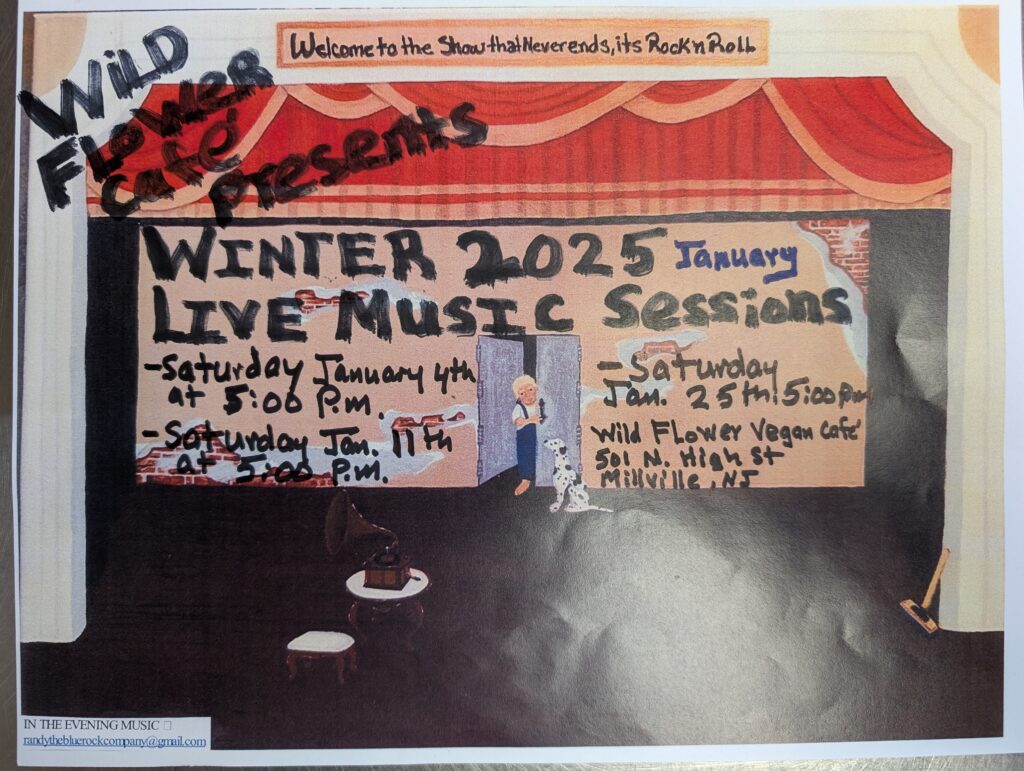 Welcome to the Show that Never ends, its Rock n Roll
WiLD
FLower
Café
Presents
WINTER 2025 January
LIVE MUSIC Sessions
- Saturday January 4th
at 5:00 P.m.
- Saturday Jan. 11th
at 5:00 P.m.
- Saturday
Jan. 25th 5:00 pm
Wild Flower Vegan Café
501 N. High St
Millville, NJ
IN THE EVENING MUSIC □
randythebluerockcompany@gmail.com